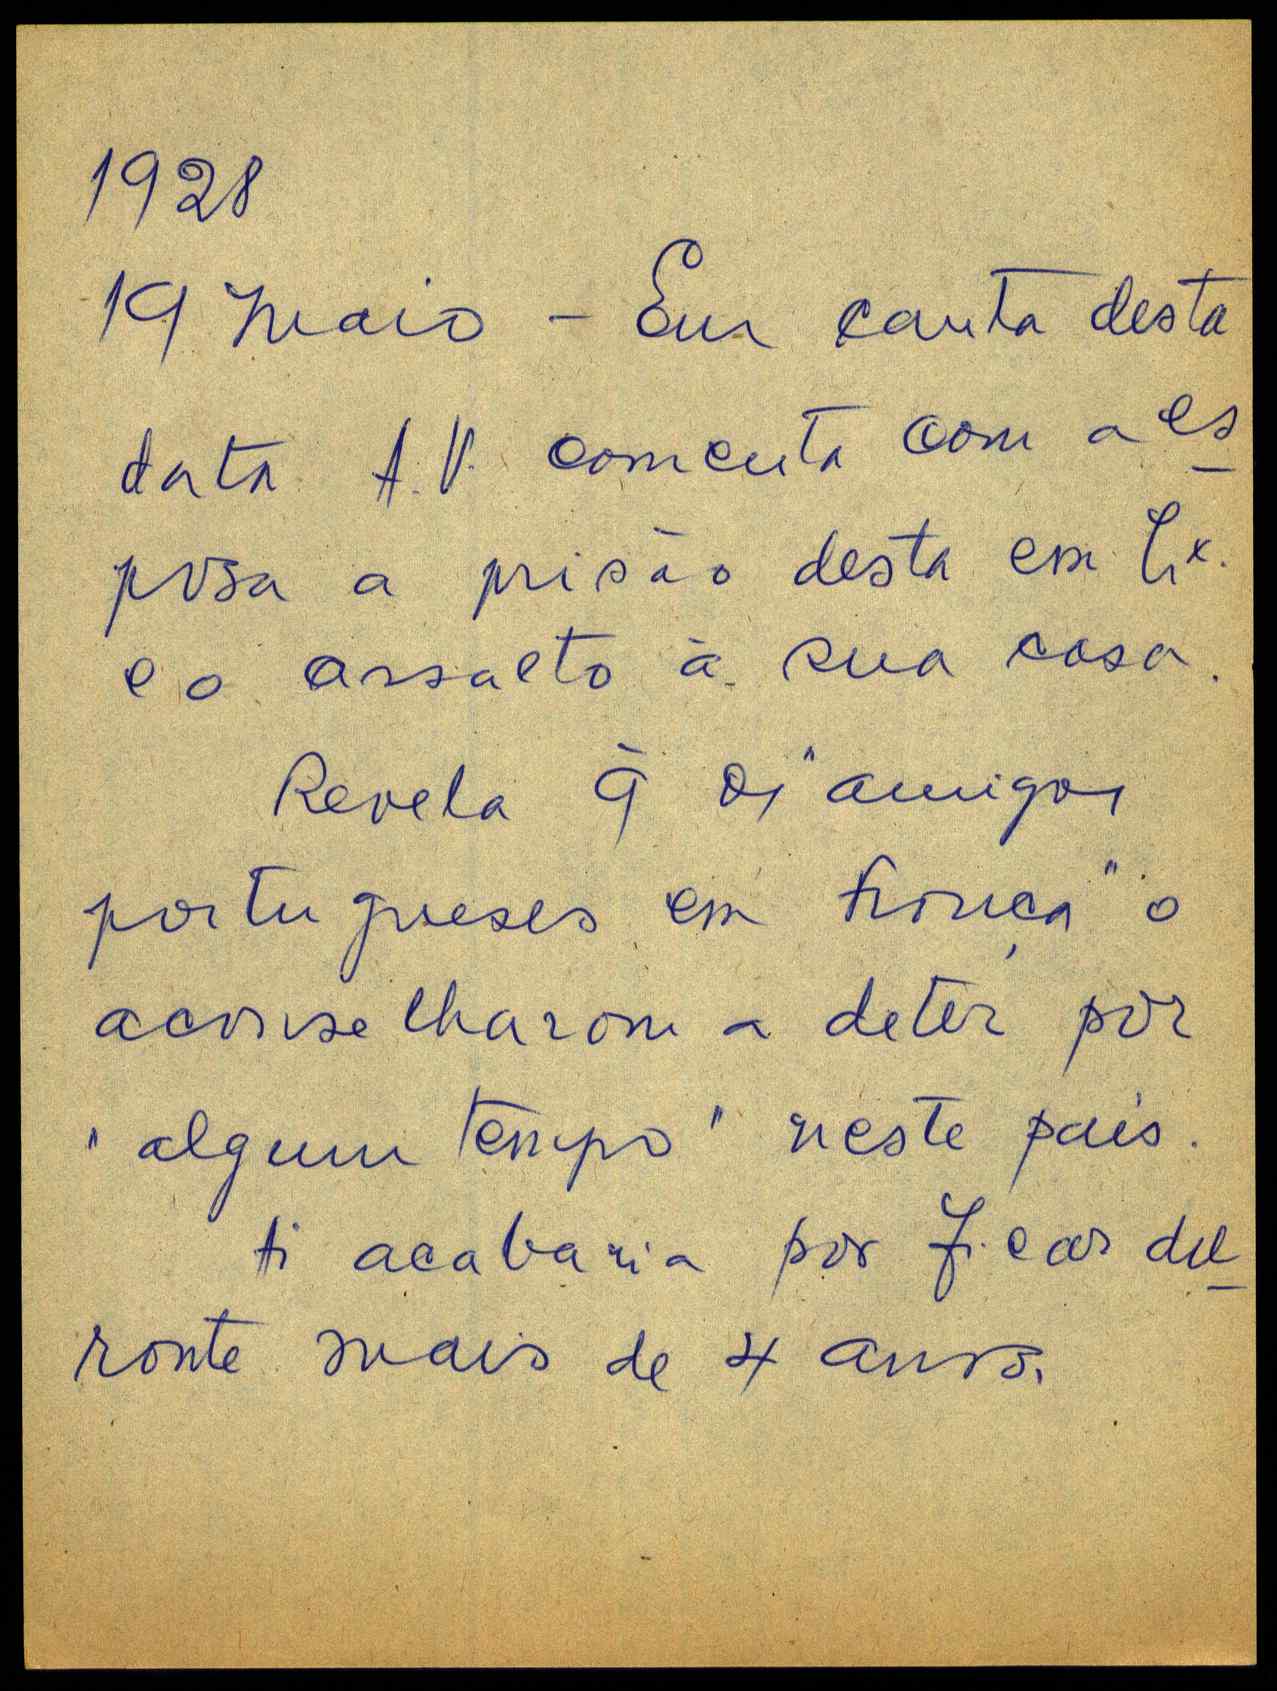 1928
19 Maio - Em carta desta
data A.V. comenta com a es
posa a prisão desta em Lx.
e o assalto à sua casa.
Revela q̃ os "amigos
portugueses em França" o
aconselharam a deter por
"algum tempo" neste país.
Aí acabaria por ficar du
rante mais de 4 anos.